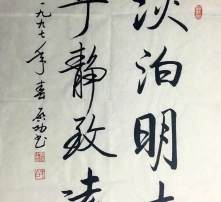 淡泊明志
宁静致远
一九九七年春 启功书